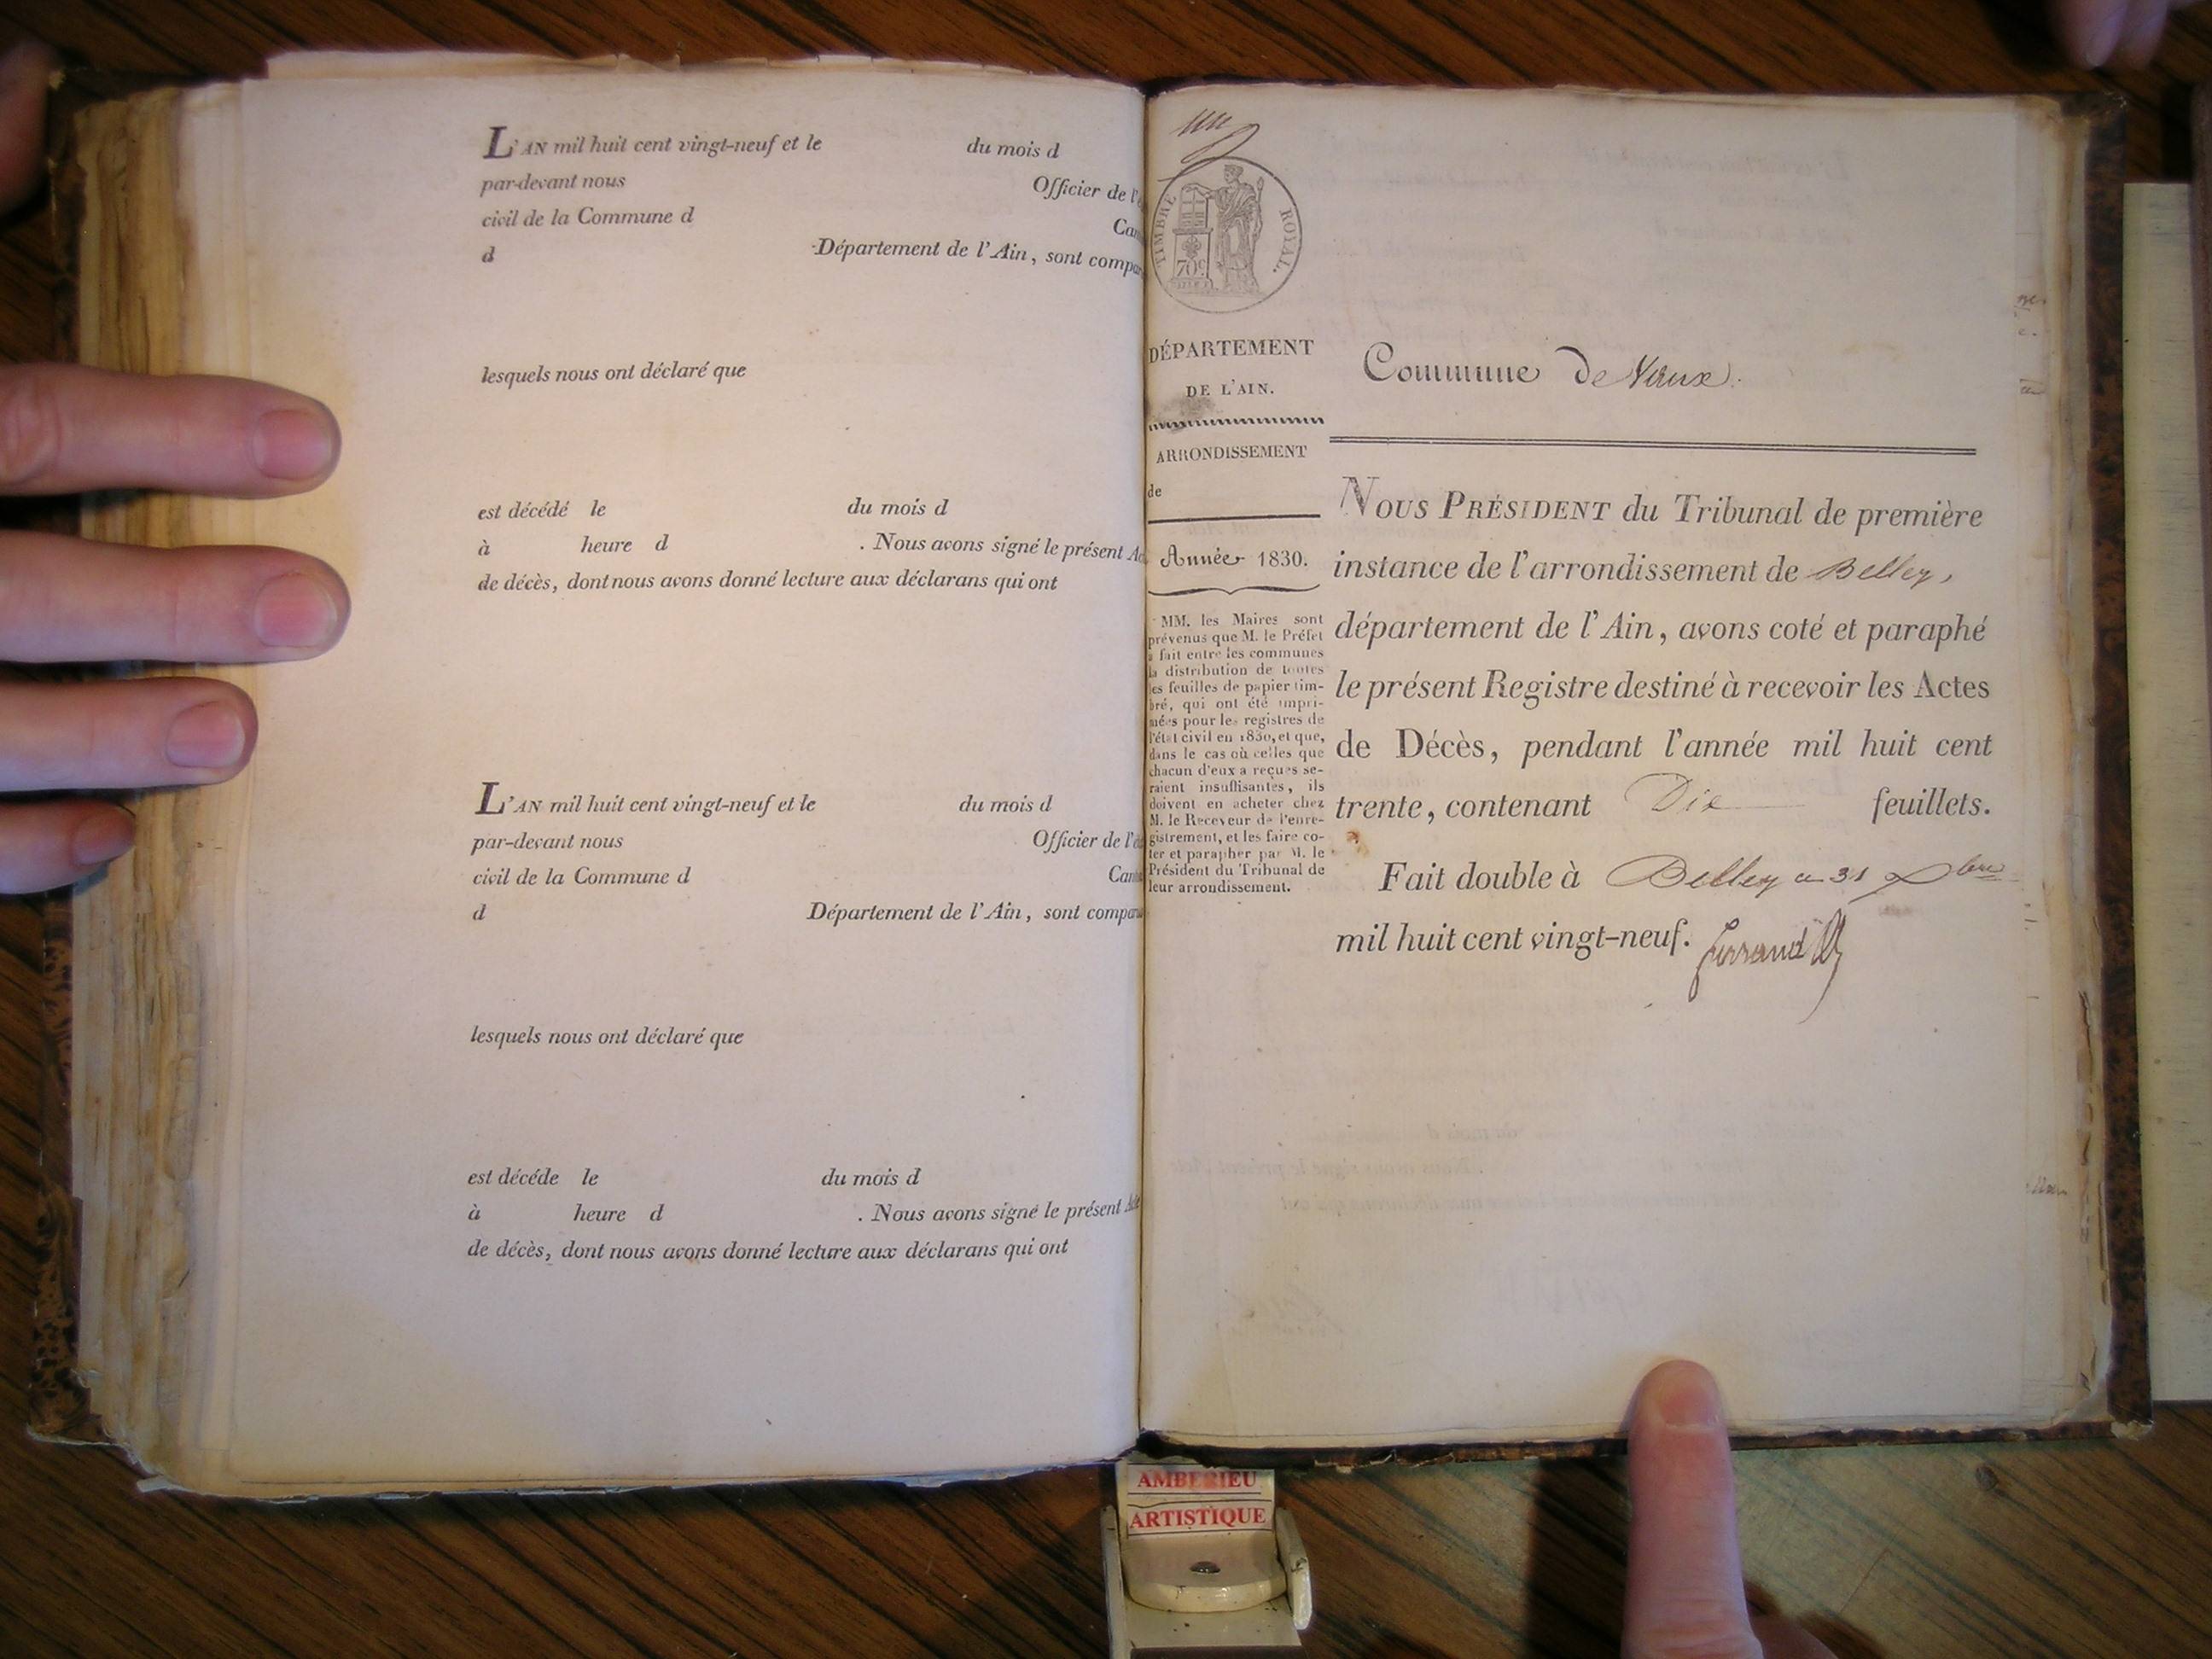 L'AN mil huit cent vingt-neuf et le du mois d
par-devant nous Officier de l'
civil de la Commune d
d Département de l'Ain, sont
lesquels nous ont déclaré que
est décédé le du mois d
à heure d . Nous avons signé le présent
de décès, dont nous avons donné lecture aux déclarans qui ont
L'AN mil huit cent vingt-neuf et le du mois d
par-devant nous Officier de l'
civil de la Commune d
d Département de l'Ain, sont
lesquels nous ont déclaré que
est décéde le du mois d
à heure d . Nous avons signé le présent
de décès, dont nous avons donné lecture aux déclarans qui ont
TIMBRE ROYAL.
70c
DÉPARTEMENT
DE L'AIN.
ARRONDISSEMENT
de
Année 1830.
MM. les Maires sont
prévenus que M. le Préfet
a fait entre les communes
la distribution de toutes
les feuilles de papier tim-
bré, qui ont été impri-
mées pour les registres de
l'état civil en 1830, et que,
dans le cas où celles que
chacun d'eux a reçues se-
raient insuffisantes, ils
doivent en acheter chez
M. le Receveur de l'enre-
gistrement, et les faire co-
ter et parapher par M. le
Président du Tribunal de
leur arrondissement.
Commune de Vaux.
NOUS PRÉSIDENT du Tribunal de première
instance de l'arrondissement de Belley,
département de l'Ain, avons coté et paraphé
le présent Registre destiné à recevoir les Actes
de Décès, pendant l'année mil huit cent
trente, contenant Dix feuillets.
Fait double à Belley le 31 Xbre
mil huit cent vingt-neuf.
AMBERIEU
ARTISTIQUE